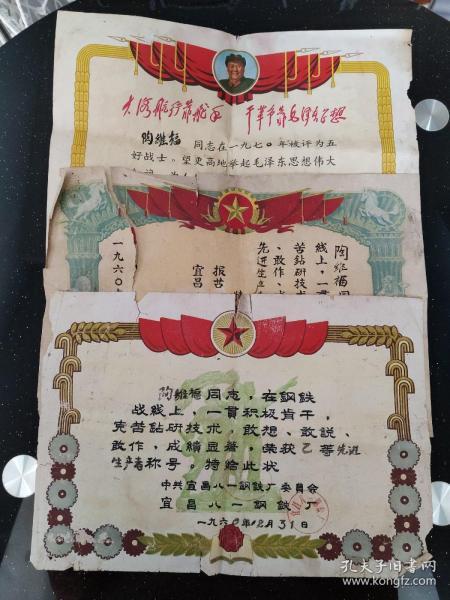 大海航行靠舵手 干革命靠毛泽东思想
陶维福 同志在一九七〇年被评为五
好战士。望更高地举起毛泽东思想伟大
陶维福同
线上，一貫
苦钻研技术
、敢作、
先进生产
报
宜昌
一九六〇
陶維福同志，在鋼鉄
战綫上，一貫积极肯干，
克苦鈷研技术，敢想、敢説、
敢作，成績显著，荣获乙等先进
生产者称号。特給此状
中共宜昌八一鋼鉄厂委員会
宜昌八一鋼鉄厂
一九六〇年12月31日
孔夫子旧书网
www.kongfz.com